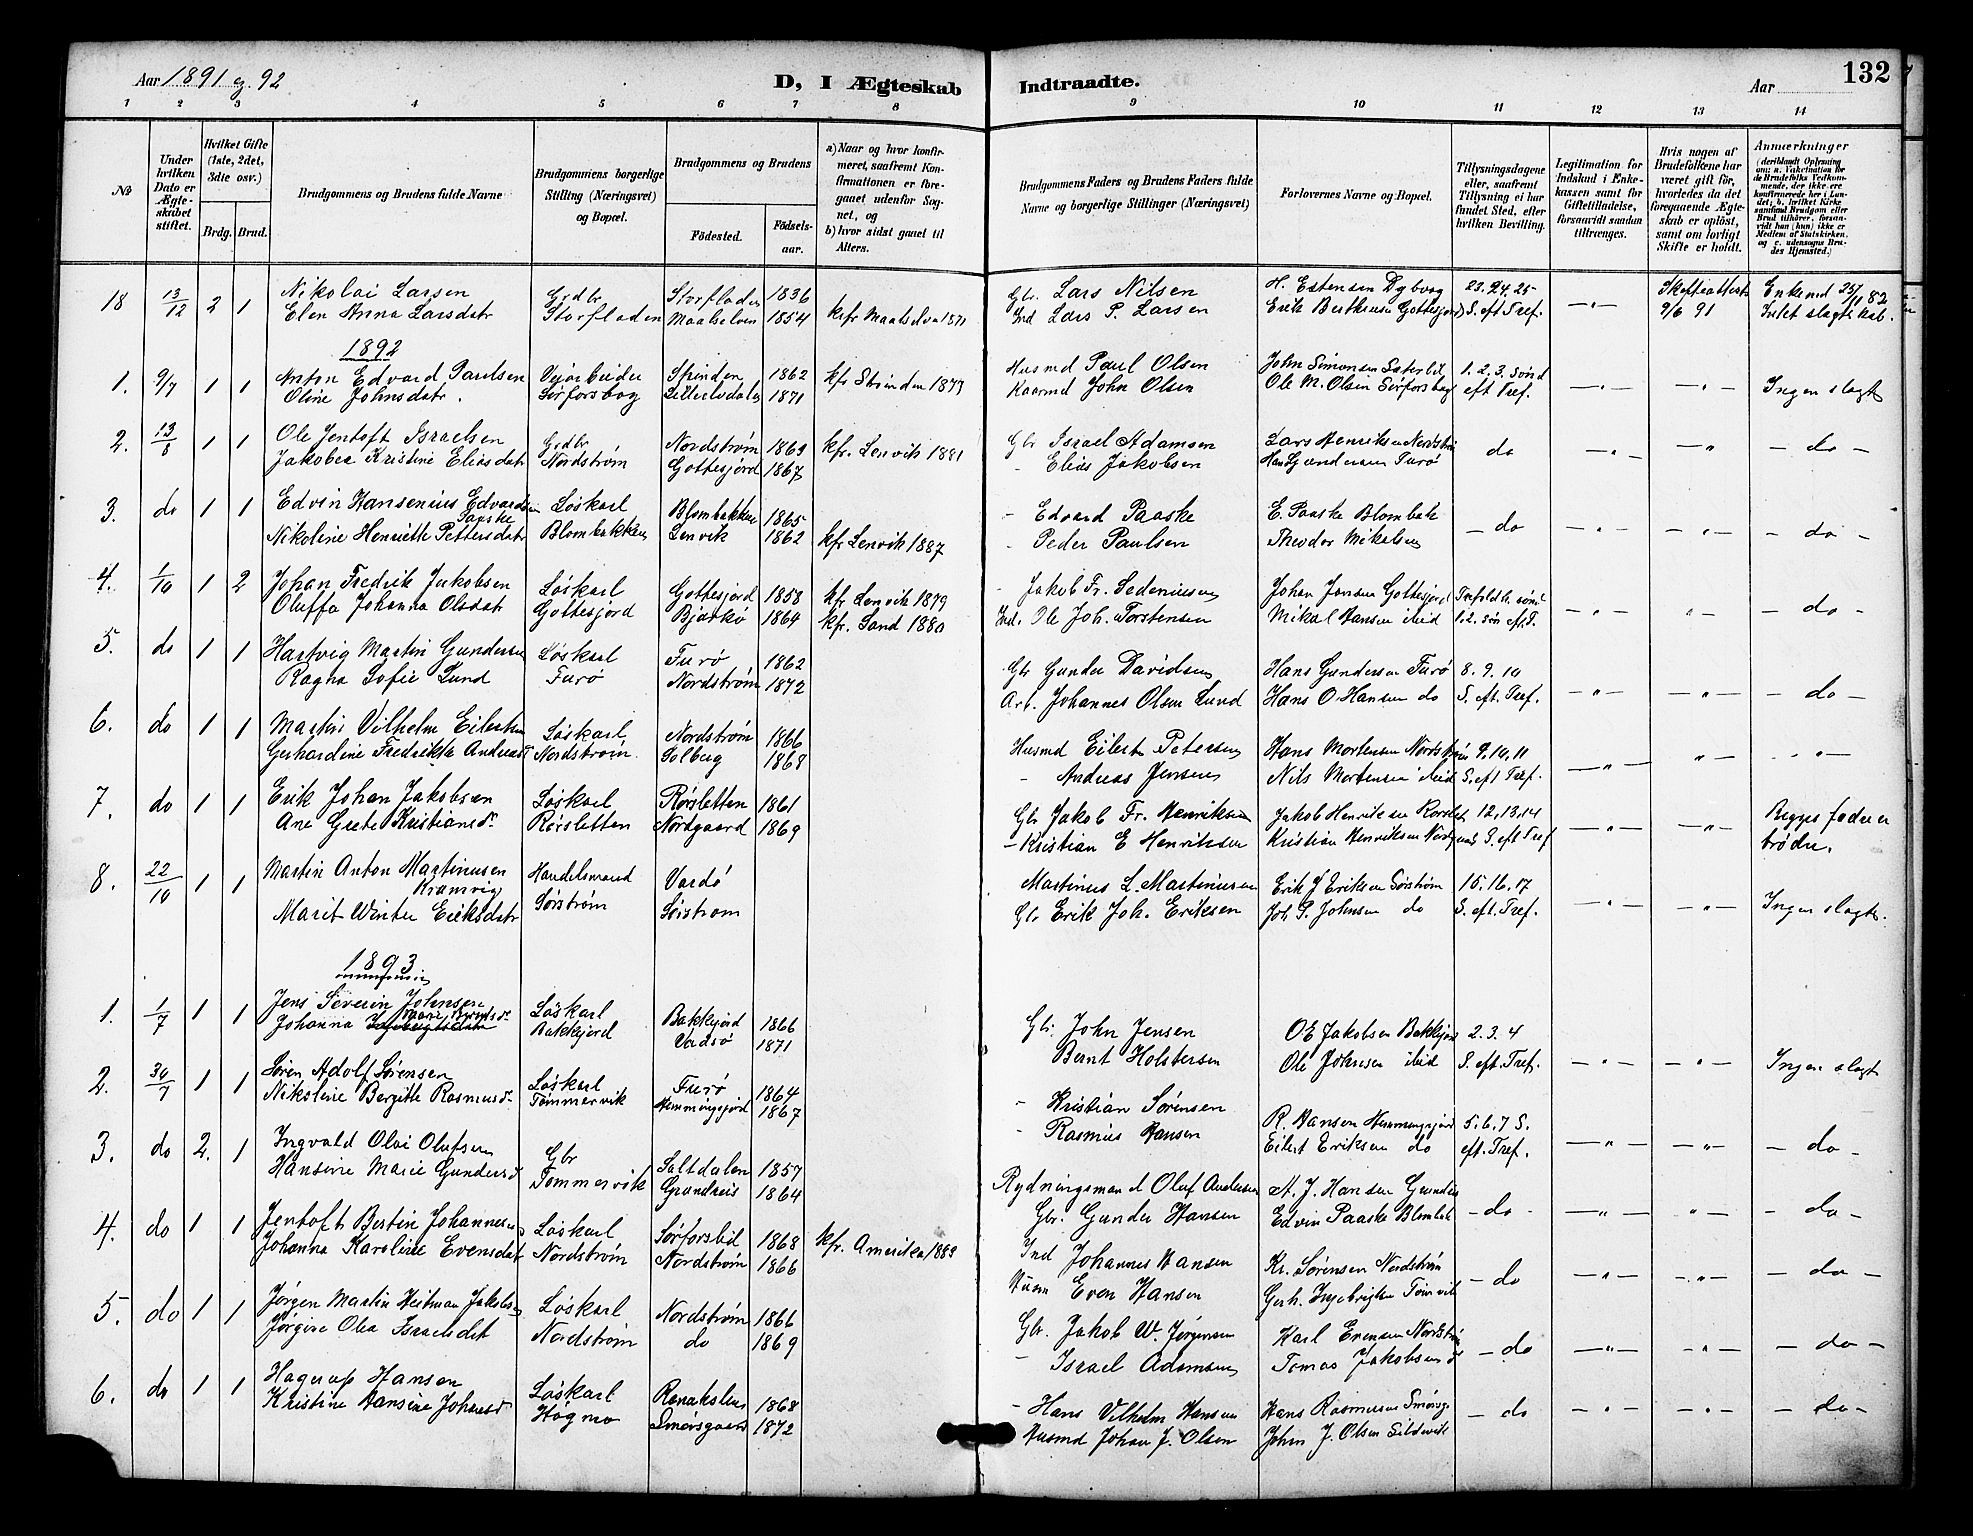 Aar 1891 og 92
D, I Ægteskab
Indtraadte.
Aar
132
1 2 3 4 5 6 7 8 9 10 11 12 13 14
No
Under hvilken Dato er Ægteskabet stiftet.
Hvilket Gifte (1ste, 2det, 3die osv.)
Brdg. Brud.
Brudgommens og Brudens fulde Navne
Brudgommens borgerlige Stilling (Næringsvei) og Bopæl.
Brudgommens og Brudens
Födested.
Födselsaar.
a) Naar og hvor konfirmeret, saafremt Konfirmationen er foregaaet udenfor Sognet, og
b) hvor sidst gaaet til Alters.
Brudgommens Faders og Brudens Faders fulde Navne og borgerlige Stillinger (Næringsvei)
Forlovernes Navne og Bopæl.
Tillysningsdagene eller, saafremt Tillysning ei har fundet Sted, efter hvilken Bevilling.
Legitimation for Indskud i Enkekassen samt for Giftetilladelse, forsaavidt saadan tiltrænges.
Hvis nogen af Brudefolkene har været gift för, hvorledes da det foregaaende Ægteskab er oplöst, samt om lovligt Skifte er holdt.
Anmærkninger
(deriblandt Oplysning om: a. Vakcination for de Brudefolks Vedkommende, der ikke ere konfirmerede her i Landet; b. hvilket Kirkesamfund Brudgom eller Brud tilhörer, forsaavidt han (hun) ikke er Medlem af Statskirken, og c. udensogns Brudes Hjemsted.)
18 13/12 2 1 Nikolai Larsen Grdbr Storfladen 1836 Gbr. Lars Nilsen H. Estensen Dyborg 23.24.25 — " — Skifteattest Enkemd 25/11 82
Elen Anna Larsdatr Storfladen Maalselven 1854 kfr Maalselven 1871 Ind Lars P. Larsen Erik Berthensen Gottesjord S. eft Tref. 9/6 91 Intet slagtskab.
1892
1. 9/7 1 1 Anton Edvard Paulsen Veiarbeider Strinden 1862 kfr Strinden 1877 Husmd Paul Olsen John Simonsen 1. 2. 3. sønd — " — — " — Ingen slagt
Oline Johnsdatr. Sørforsbog 1871 Kaarmd John Olsen Ole M. Olsen Sørforsbog eft Tref.
2. 13/8 1 1 Ole Jentoft Israelsen Grdbr Nordstrøm 1869 kfr. Lenvik 1881 Gbr Israel Adamsen Lars Henriksen Nordstrøm do — " — " — do —
Jakobea Kristine Eliasdatr Nordstrøm Gottesjord 1867 - Elias Jakobsen Hans Gundersen Furø
3. do 1 1 Edvin Hansenius Edvardsen Paaske Løskarl Blombakken 1865 - Edvard Paaske E. Paaske Blombak — do — " — — " — — do —
Nikoline Henriette Pettersdatr Blombakken Lenvik 1862 kfr Lenvik 1887 - Peder Paulsen Theodor Mikelsen
4. 1/10 1 2 Johan Fredrik Jakobsen Løskarl Gottesjord 1858 kfr Lenvik 1879 - Jakob Fr. Sedeniussen Johan Jonsen Gottesjord — " — " — do —
Oluffa Johanna Olsdatr Gottesjord Bjarkø 1864 kfr. Sand 1880 Ind. Ole Joh. Torstensen Mikal Hansen ibid 1.2. søn eft. T.
5. do 1 1 Hartvig Martin Gundersen Løskarl Furø 1862 Gbr Gunder Davidsen Hans Gundersen Furø 8. 9. 10 — " — — " — — do —
Ragna Sofie Lund Furø Nordstrøm 1872 Arb. Johannes Olsen Lund Hans O Hansen do S. eft. Tref.
6. do 1 1 Martin Vilhelm Eilertsen Løskarl Nordstrøm 1866 Husmd Eilert Petersen Hans Mortensen Nordstrøm 9. 10. 11 — " — " — " —
Gerhardine Fredrikke Andreasd Nordstrøm. Solberg 1868 - Andreas Jensen Nils Mortensen ibid S. eft Tref.
7. do 1 1 Erik Johan Jakobsen Løskarl Rørsletten 1861 Gbr Jakob Fr. Henriksen Jakob Henriksen Rørslet 12, 13, 14 — " — — " — Begges fædre er
Ane Grete Kristiansd. Rørsletten Nordgaard 1869 - Kristian E Henriksen Kristian Henriksen Nordgaard S. eft Tref brødre.
8. 22/10 1 1 Martin Anton Martinusen Kramvig Handelsmand Vardø Martinus L. Martinusen Erik J Eriksen Sørstrøm 15. 16. 17 — " — — " — Ingen slagt.
Marit Winter Eriksdatr Sørstrøm Sørstrøm Gbr Erik Joh. Eriksen Joh. P. Johnsen do S. eft. Tref.
1893
1. 1/7 1 1 Jens Severin Johnsen Løskarl Bakkejord 1866 Gbr John Jensen O E Jakobsen Bakkejord 2. 3. 4 — " — — " — Ingen slagt
Johanna Marie Berntsdr Bakkejord Vadsø 1871 Bernt Holstersen Ole Johnsen ibid S. eft. Tref.
2. 30/7 1 1 Søren Adolf Sørensen Løskarl Furø 1864 - Kristian Sørensen R. Hansen Hemmingsjord 5. 6. 7 S. — " — — " — — do —
Nikoline Bergitte Rasmusd. Tømmervik Hemmingsjord 1867 - Rasmus Hansen Eilert Eriksen do eft. Tref.
3. do 2. 1 Ingvald Olai Olufsen Gbr Saltdalen 1857 Rydningsmand Oluf Andersen A. J. Hansen — do — — " — " — — do —
Hansine Marie Gundersd Tømmervik Grundreis 1864 Gbr. Gunder Hansen Edvin Paaske Blombak
4. do 1 1 Jentoft Bertin Johannesen Løskarl Sørforslid 1868 kfr. Amerika 1889 Ind Johannes Hansen Kr. Sørensen Nordstrøm — do — " — — " — — do —
Johanna Karoline Evensdat Nordstrøm Nordstrøm 1866 Husm Even Hansen Gerh. Ingebrigtsen Tømvik
5. do 1 1 Jørgen Martin Heitman Jakobsen Løskarl Nordstrøm 1866 Gbr. Jakob W. Jørgensen Karl Evensen Nordstrøm — do — " — — " — — do —
Jørgine Olea Israelsdat Nordstrøm do 1869 - Israel Adamsen Tomas Jakobsen d
6. do 1 1 Hagerup Hansen Løskarl 1868 - Hans Vilhelm Hansen Hans Rasmussen — do — " — — " — — do —
Kristine Hansine Johansd Høgmo Smørsgaard 1872 Husmd Johan J. Olsen John J. Olsen Sildevik